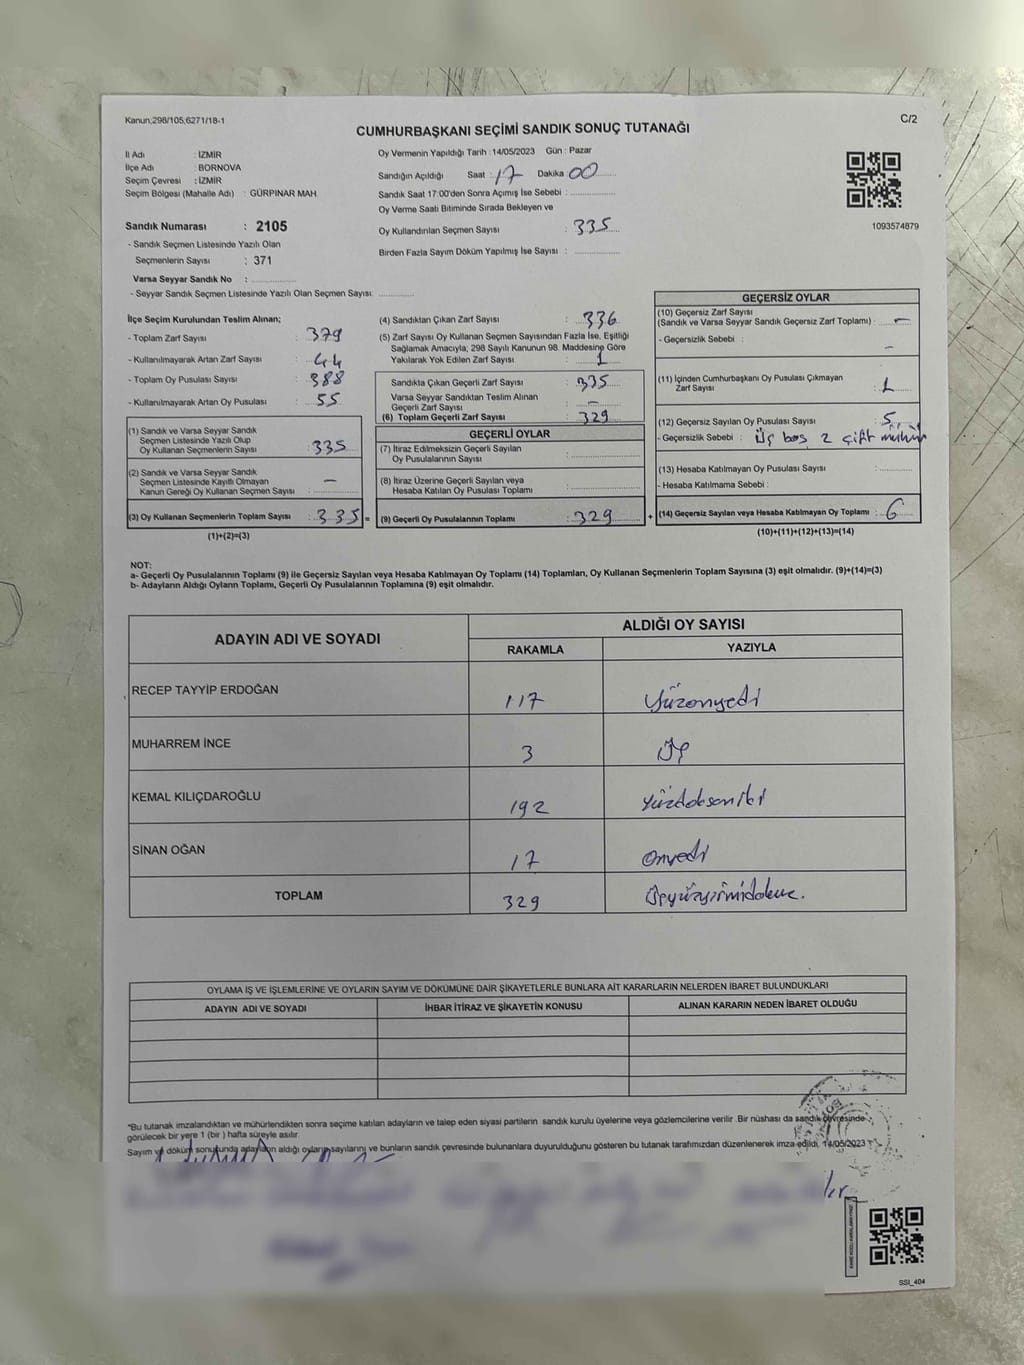 Kanun;298/105;6271/18-1
C/2
CUMHURBAŞKANI SEÇİMİ SANDIK SONUÇ TUTANAĞI
İl Adı : İZMİR
İlçe Adı : BORNOVA
Seçim Çevresi : İZMİR
Seçim Bölgesi (Mahalle Adı) : GÜRPINAR MAH.
Oy Vermenin Yapıldığı Tarih :14/05/2023 Gün : Pazar
Sandığın Açıldığı Saat : 17 Dakika 00
Sandık Saat 17:00'den Sonra Açımış İse Sebebi :
Oy Verme Saati Bitiminde Sırada Bekleyen ve
Oy Kullandırılan Seçmen Sayısı : 335
Birden Fazla Sayım Döküm Yapılmış İse Sayısı :
1093574879
Sandık Numarası : 2105
- Sandık Seçmen Listesinde Yazılı Olan
Seçmenlerin Sayısı : 371
Varsa Seyyar Sandık No :
- Seyyar Sandık Seçmen Listesinde Yazılı Olan Seçmen Sayısı:
İlçe Seçim Kurulundan Teslim Alınan;
- Toplam Zarf Sayısı : 379
- Kullanılmayarak Artan Zarf Sayısı : 44
- Toplam Oy Pusulası Sayısı : 388
- Kullanılmayarak Artan Oy Pusulası : 55
(1) Sandık ve Varsa Seyyar Sandık
Seçmen Listesinde Yazılı Olup
Oy Kullanan Seçmenlerin Sayısı : 335
(2) Sandık ve Varsa Seyyar Sandık
Seçmen Listesinde Kayıtlı Olmayan
Kanun Gereği Oy Kullanan Seçmen Sayısı : –
(3) Oy Kullanan Seçmenlerin Toplam Sayısı : 335 =
(1)+(2)=(3)
(4) Sandıktan Çıkan Zarf Sayısı : 336
(5) Zarf Sayısı Oy Kullanan Seçmen Sayısından Fazla İse, Eşitliği
Sağlamak Amacıyla; 298 Sayılı Kanunun 98. Maddesine Göre
Yakılarak Yok Edilen Zarf Sayısı : 1
Sandıkta Çıkan Geçerli Zarf Sayısı : 335
Varsa Seyyar Sandıktan Teslim Alınan
Geçerli Zarf Sayısı : –
(6) Toplam Geçerli Zarf Sayısı : 329
GEÇERLİ OYLAR
(7) İtiraz Edilmeksizin Geçerli Sayılan
Oy Pusulalarının Sayısı :
(8) İtiraz Üzerine Geçerli Sayılan veya
Hesaba Katılan Oy Pusulası Toplamı :
(9) Geçerli Oy Pusulalarının Toplamı : 329 +
GEÇERSİZ OYLAR
(10) Geçersiz Zarf Sayısı
(Sandık ve Varsa Seyyar Sandık Geçersiz Zarf Toplamı) : –
- Geçersizlik Sebebi : –
(11) İçinden Cumhurbaşkanı Oy Pusulası Çıkmayan
Zarf Sayısı : 1
(12) Geçersiz Sayılan Oy Pusulası Sayısı : 5
- Geçersizlik Sebebi : Üç boş 2 çift mühür
(13) Hesaba Katılmayan Oy Pusulası Sayısı :
- Hesaba Katılmama Sebebi :
(14) Geçersiz Sayılan veya Hesaba Katılmayan Oy Toplamı : 6
(10)+(11)+(12)+(13)=(14)
NOT:
a- Geçerli Oy Pusulalarının Toplamı (9) ile Geçersiz Sayılan veya Hesaba Katılmayan Oy Toplamı (14) Toplamları, Oy Kullanan Seçmenlerin Toplam Sayısına (3) eşit olmalıdır. (9)+(14)=(3)
b- Adayların Aldığı Oyların Toplamı, Geçerli Oy Pusulalarının Toplamına (9) eşit olmalıdır.
ADAYIN ADI VE SOYADI
ALDIĞI OY SAYISI
RAKAMLA YAZIYLA
RECEP TAYYİP ERDOĞAN 117 Yüzonyedi
MUHARREM İNCE 3 Üç
KEMAL KILIÇDAROĞLU 192 Yüzdoksaniki
SİNAN OĞAN 17 Onyedi
TOPLAM 329 Üçyüzyirmidokuz.
OYLAMA İŞ VE İŞLEMLERİNE VE OYLARIN SAYIM VE DÖKÜMÜNE DAİR ŞİKAYETLERLE BUNLARA AİT KARARLARIN NELERDEN İBARET BULUNDUKLARI
ADAYIN ADI VE SOYADI İHBAR İTİRAZ VE ŞİKAYETİN KONUSU ALINAN KARARIN NEDEN İBARET OLDUĞU
"Bu tutanak imzalandıktan ve mühürlendikten sonra seçime katılan adayların ve talep eden siyasi partilerin sandık kurulu üyelerine veya gözlemcilerine verilir. Bir nüshası da sandık çevresinde
görülecek bir yere 1 (bir ) hafta süreyle asılır.
Sayım ve döküm sonutunda adayların aldığı oyların sayılarını ve bunların sandık çevresinde bulunanlara duyurulduğunu gösteren bu tutanak tarafımızdan düzenlenerek imza edildi. 14/05/2023
SSI_404